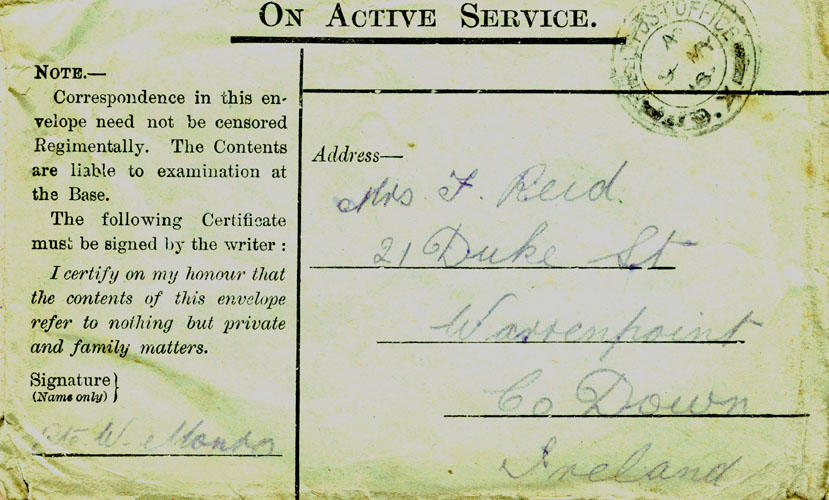 ON ACTIVE SERVICE.
POST OFFICE
NOTE.—
Correspondence in this en-
velope need not be censored
Regimentally. The Contents
are liable to examination at
the Base.
The following Certificate
must be signed by the writer :
I certify on my honour that
the contents of this envelope
refer to nothing but private
and family matters.
Signature
(Name only)
Pte W.
Address—
Mrs F. Reid.
21 Duke St
Warrenpoint
Co Down
Ireland